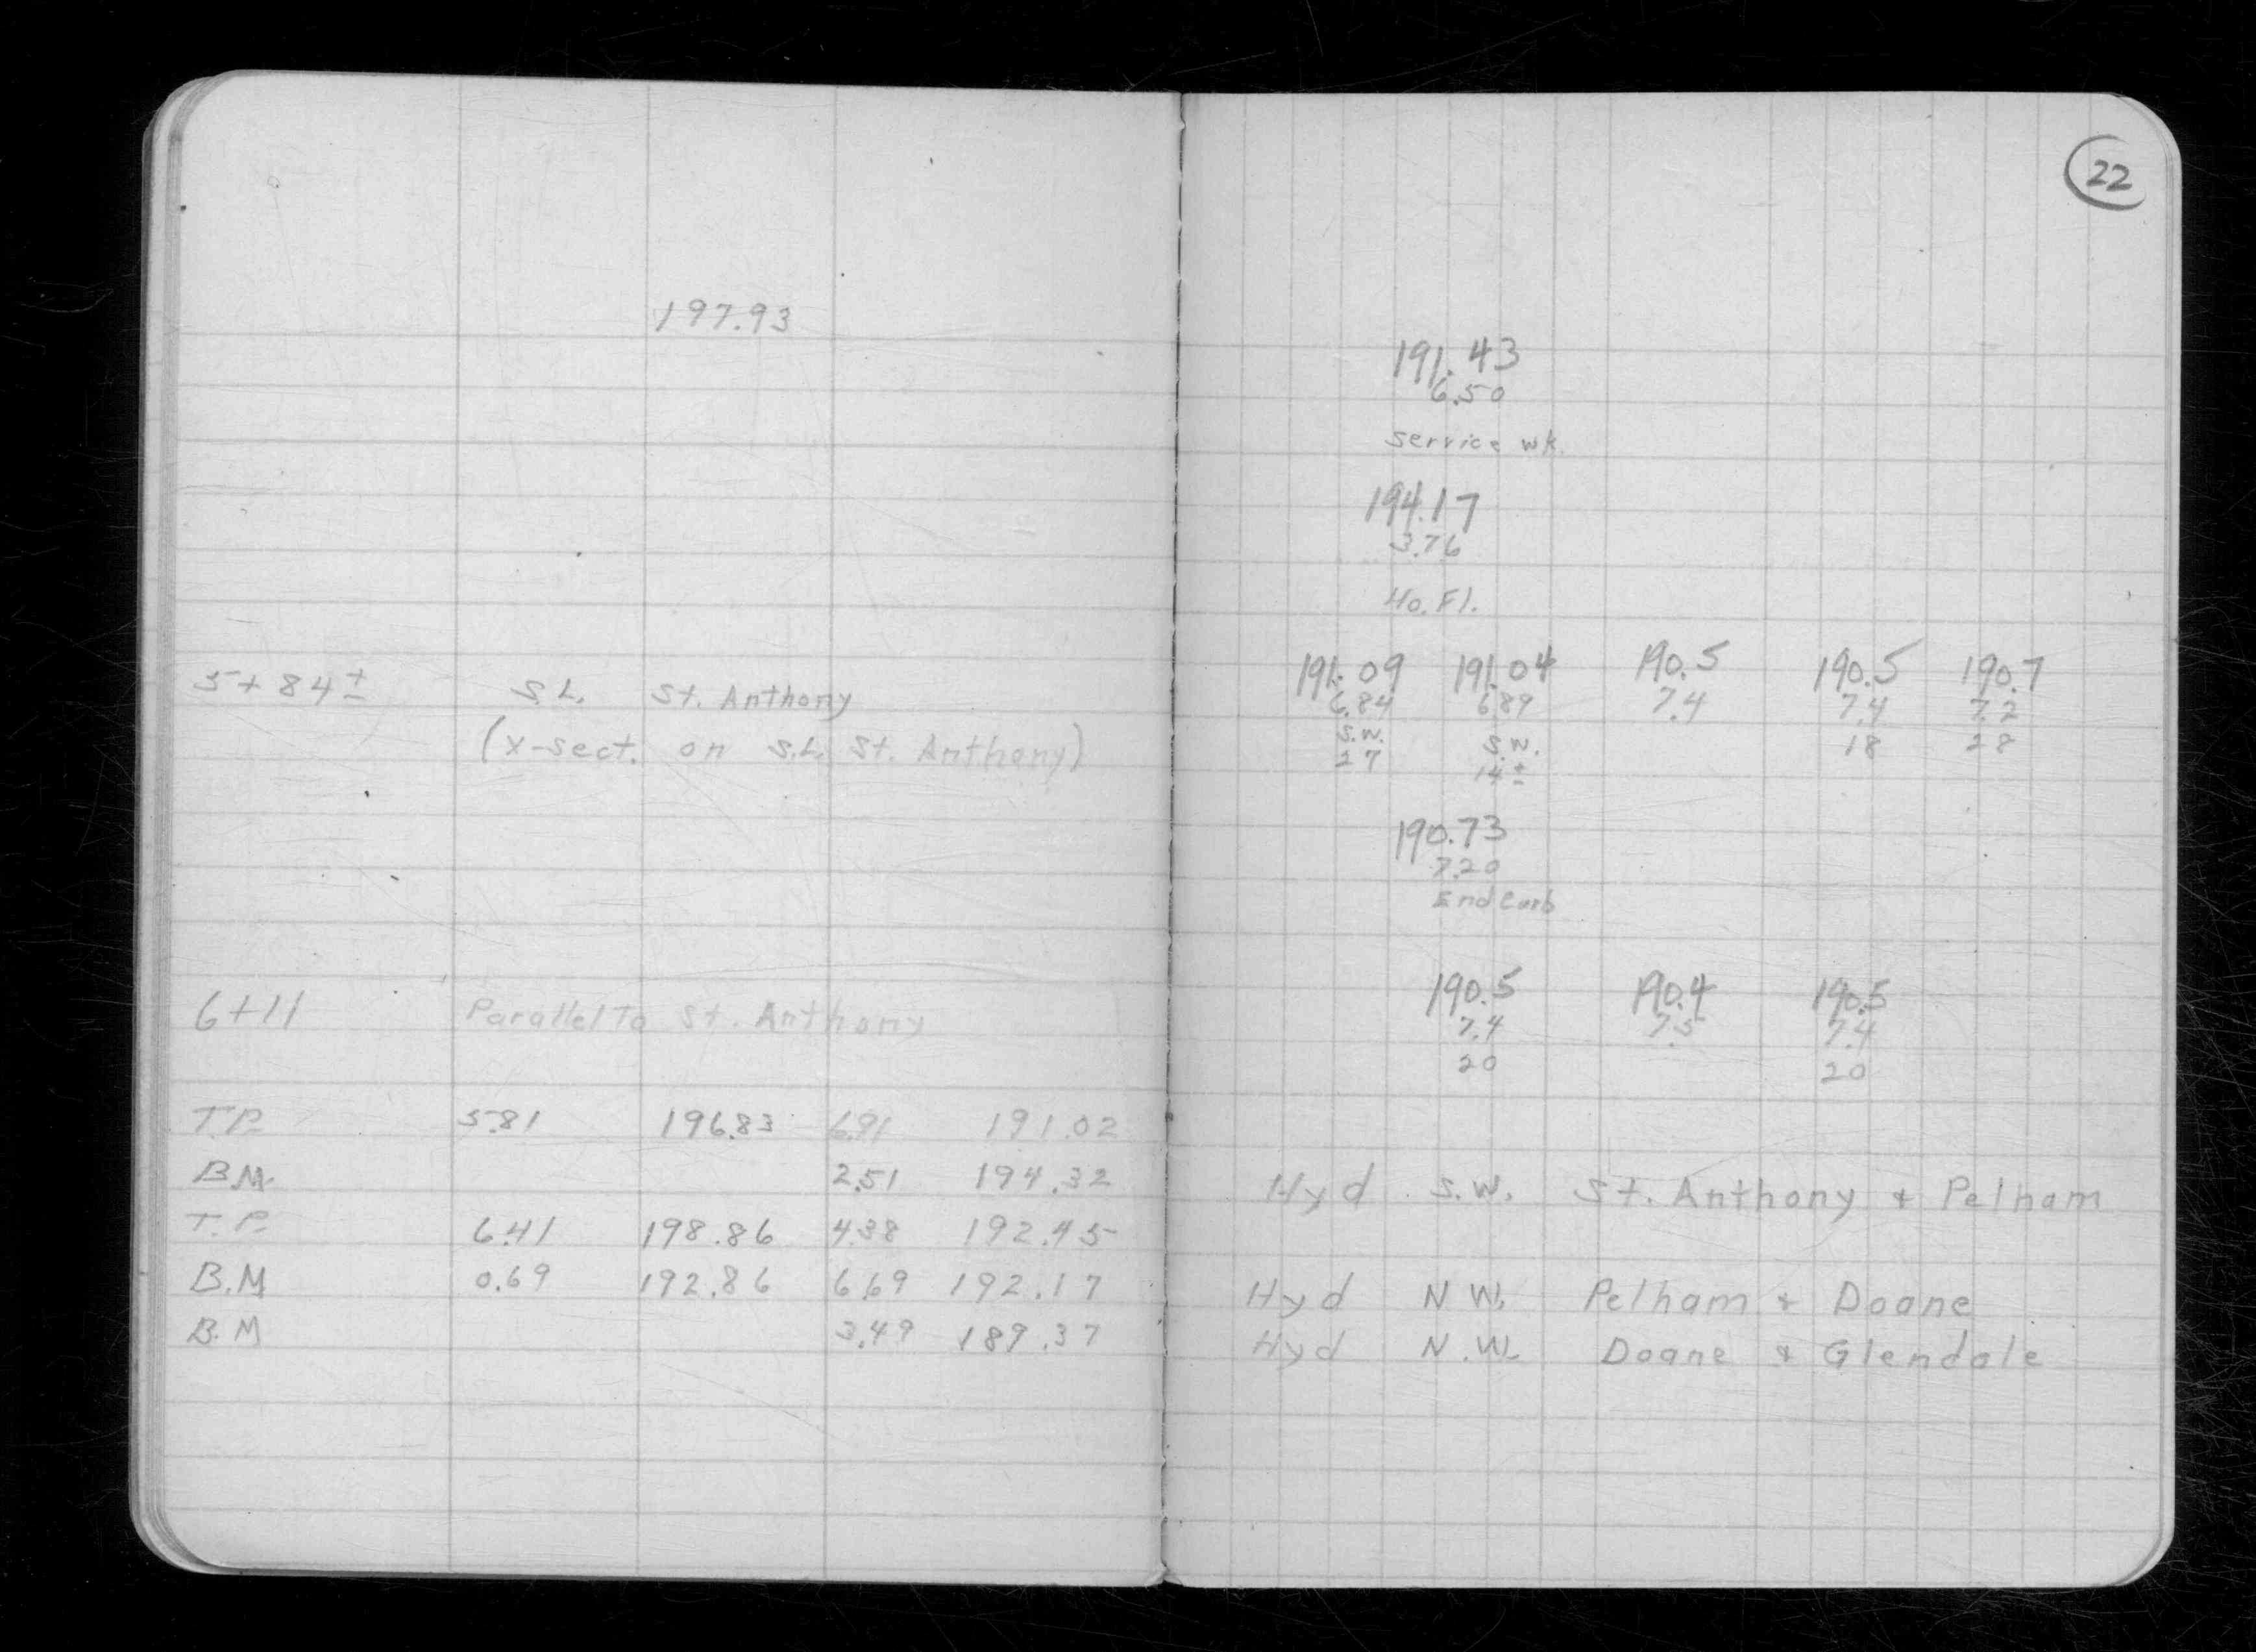 22
197.93
191.43
6.50
service wk.
194.17
3.76
Ho. Fl.
191.09 191.04 190.5 190.5 190.7
5+84± S.L. St. Anthony 6.84 6.89 7.4 7.4 7.2
S.W. S.W. 18 28
(x-sect. on S.L. St. Anthony) 27 14±
190.73
7.20
End Curb
190.5 190.4 190.5
6+11 Parallel To St. Anthony 7.4 7.5 7.4
20 20
T.P. 5.81 196.83 6.91 191.02
B.M. 2.51 194.32 Hyd S.W. St. Anthony & Pelham
T.P. 6.41 198.86 4.38 192.45
B.M 0.69 192.86 6.69 192.17 Hyd N.W. Pelham & Doane
B.M 3.49 189.37 Hyd N.W. Doane & Glendale